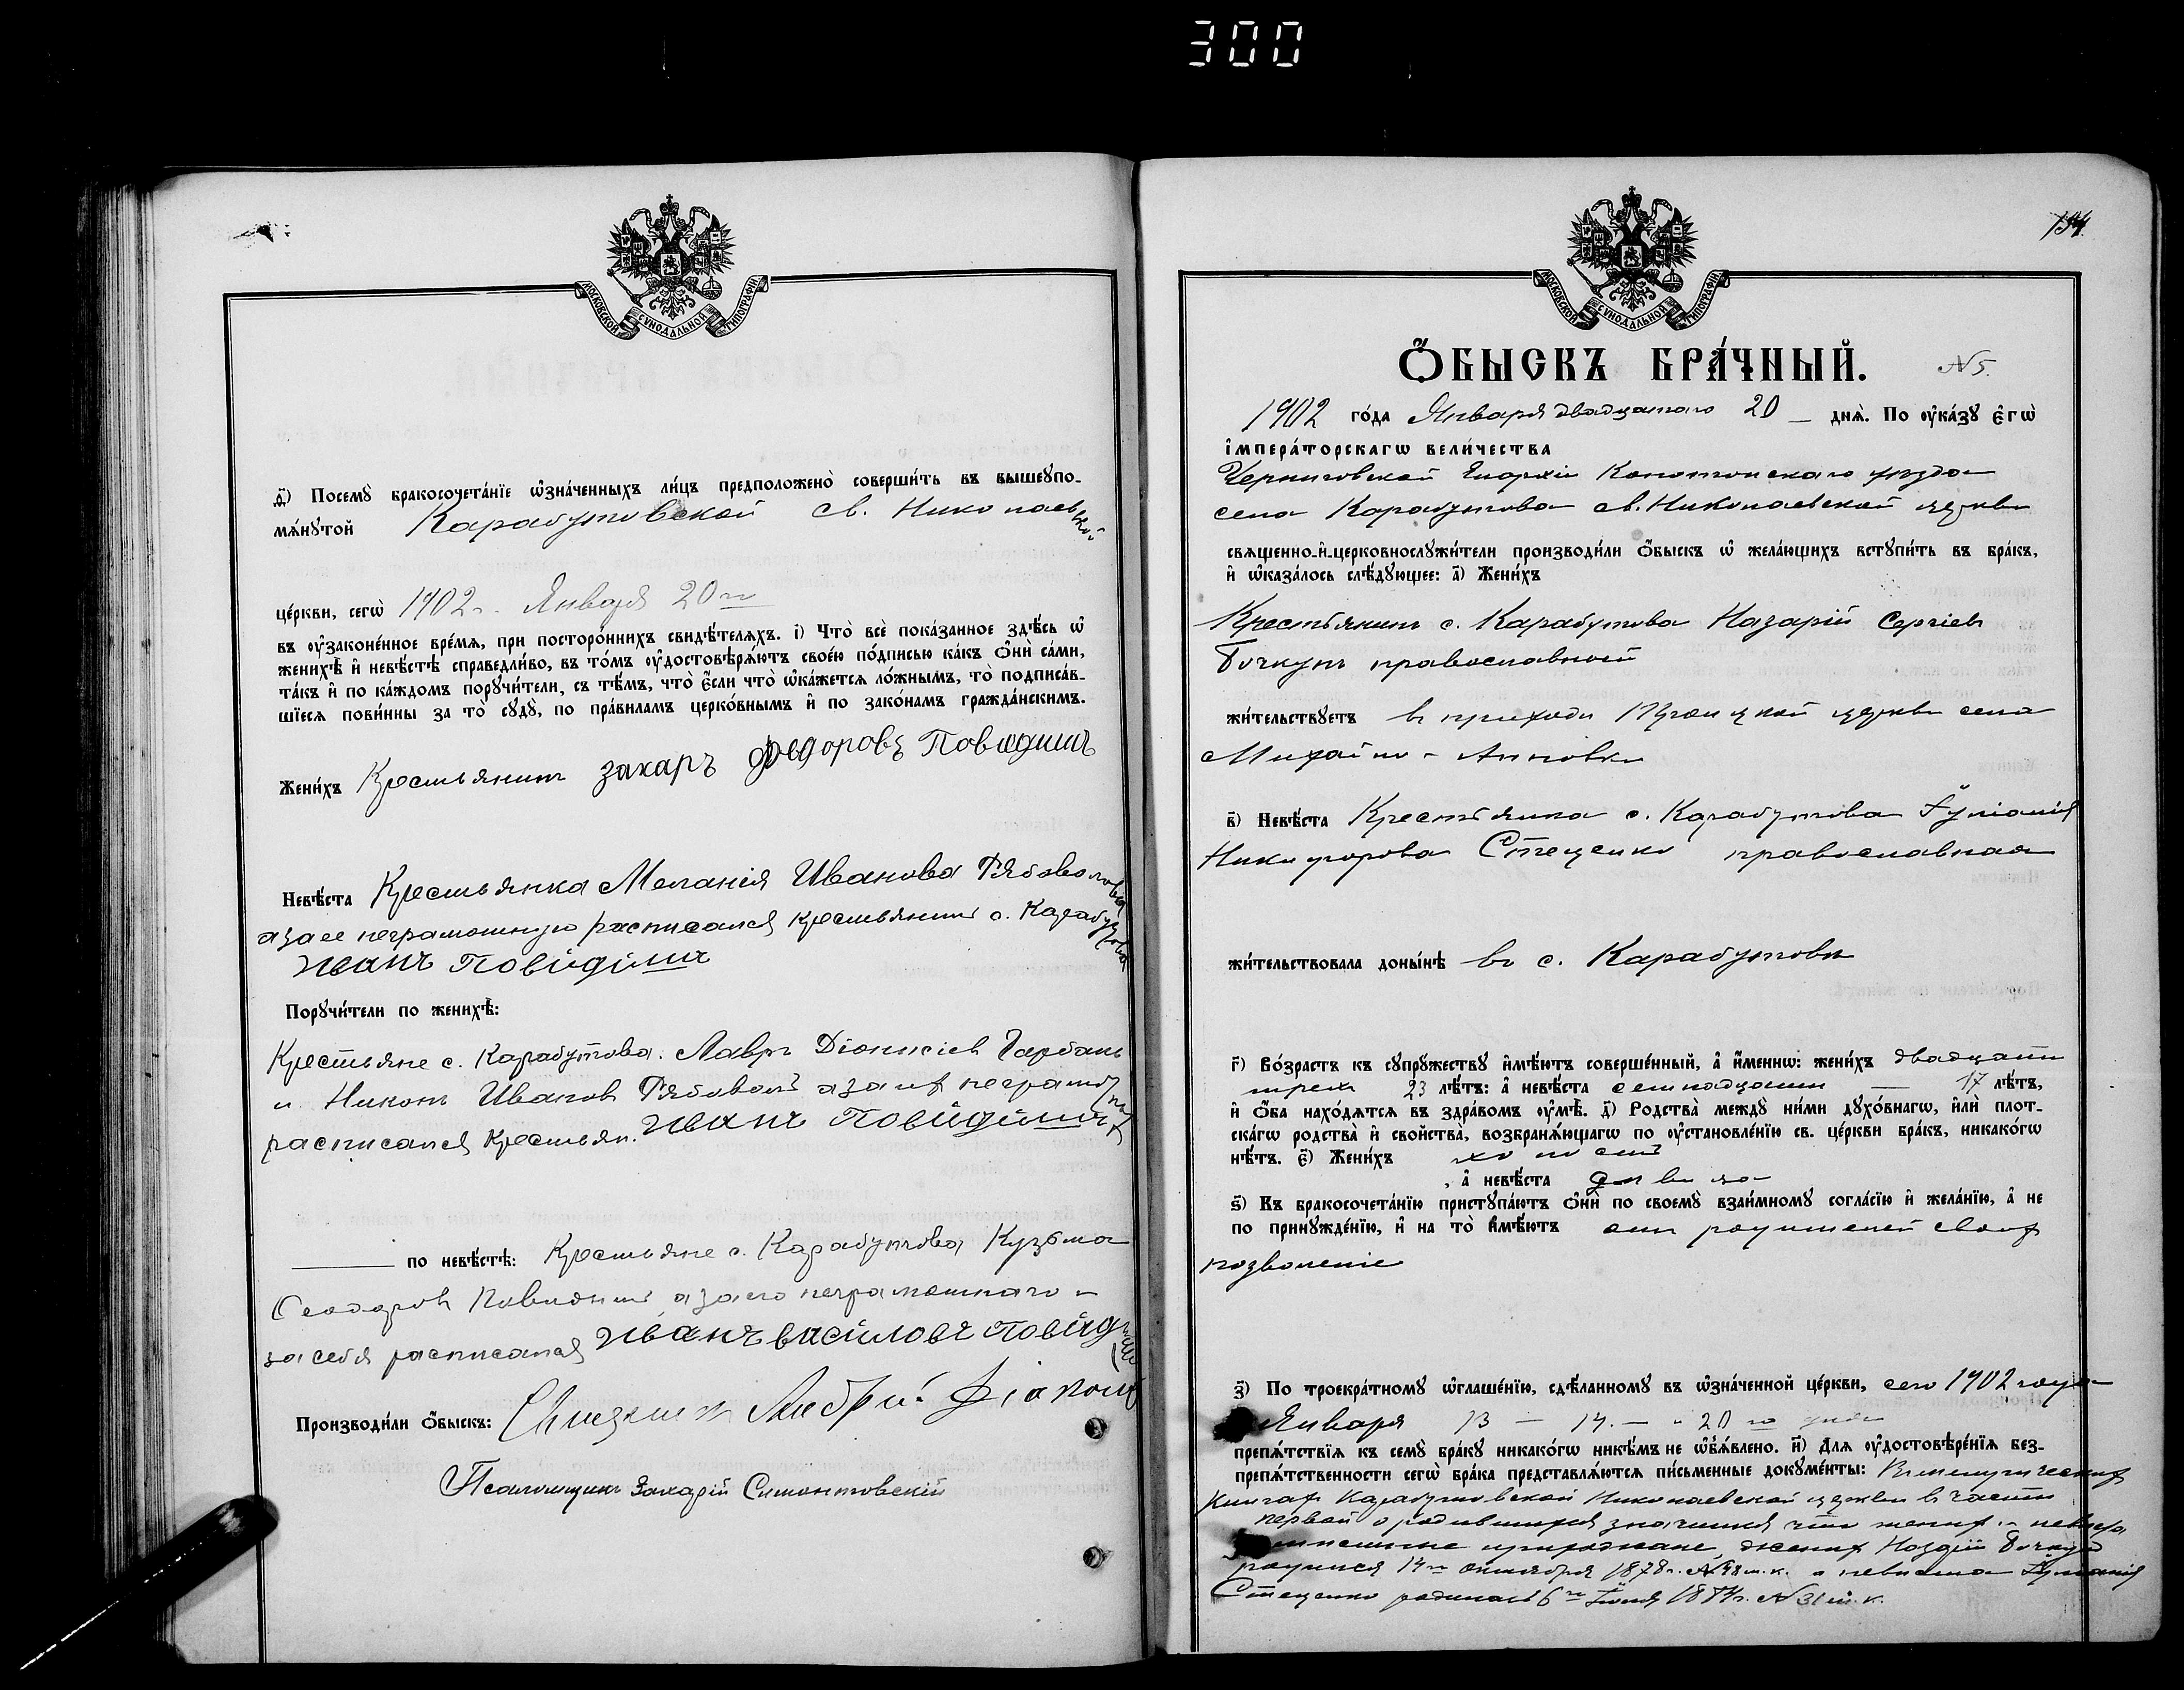 300
МОСКОВСКОЙ СѴНОДАЛЬНОЙ ТИПОГРАФІИ.
д҃) Посемꙋ̀ бракосочета́нїе ѡ҆зна́ченныхъ ли́цъ предположено̀ соверши́ть въ вышеꙋпо-
мѧ́нꙋтой Карабутовской св. Николаевской
це́ркви, сегѡ̀ 1902 г. Января 20 го
въ ᲂу҆зако́ненное вре́мѧ, при посторо́ннихъ свидѣ́телѧхъ. і҃) Что̀ всѐ пока́занное здѣ́сь ѡ҆
женихѣ̀ и҆ невѣ́стѣ справедли́во, въ то́мъ ᲂу҆достовѣрѧ́ютъ свое́ю по́дписью ка́къ ѻ҆нѝ са́ми,
та́къ и҆ по ка́ждомъ порꙋчи́тели, съ тѣ́мъ, что̀ є҆́сли что̀ ѡ҆ка́жетсѧ ло́жнымъ, то̀ подписа́в-
шїесѧ пови́нны за то̀ сꙋдꙋ̀, по пра́виламъ церко́внымъ и҆ по зако́намъ гражда́нскимъ.
Жени́хъ Крестьянинъ захаръ федоровъ Повидишъ
Невѣ́ста Крестьянка Меланія Иванова Рябоволова
а за ее неграмотную расписался крестьянинъ с. Карабутова
иванъ Повидишъ
Порꙋчи́тели по женихѣ̀:
Крестьяне с. Карабутова: Лавръ Діонисіевъ Гарбань
и Никонъ Ивановъ Рябоволъ а за ихъ неграмотныхъ
расписался крестьян. иванъ Повидишъ
по невѣ́стѣ: Крестьяне с. Карабутова Кузьма
Ѳеодоровъ Повидишъ а за его неграмотнаго и
за себя расписался иванъ василовъ Повидишъ
Производи́ли ѻ҆́быскъ: Священникъ Андрей
Псаломщикъ Захарій Симонтовскій
134.
МОСКОВСКОЙ СѴНОДАЛЬНОЙ ТИПОГРАФІИ.
Ѻ҆́БЫСКЪ БРА́ЧНЫЙ. № 5.
1902 го́да Января двадцатаго 20 — днѧ̀. По ᲂу҆ка́зꙋ є҆гѡ̀
і҆мпера́торскагѡ вели́чества
Черниговской Епархіи Конотопскаго уѣзда
села Карабутова св. Николаевской церкви
свѧщенно-и҆-церковнослꙋжи́тели производи́ли ѻ҆́быскъ ѡ҆ жела́ющихъ встꙋпи́ть въ бра́къ,
и҆ ѡ҆каза́лось слѣ́дꙋющее: а҃) Жени́хъ
Крестьянинъ с. Карабутова Назарій Сергіевъ
Бочкунъ православный
жи́тельствꙋетъ въ приходѣ Троицкой церкви села
Михайло-Анновки
в҃) Невѣ́ста Крестьянка с. Карабутова Іуліанія
Никифорова Стеценко православная
жи́тельствовала доны́нѣ въ с. Карабутовѣ
г҃) Во́зрастъ къ сꙋпрꙋ́жествꙋ и҆мѣ́ютъ соверше́нный, а҆ и҆́меннѡ: жени́хъ двадцати
трехъ 23 лѣ́тъ: а҆ невѣ́ста семнадцати — 17 лѣ́тъ,
и҆ ѻ҆́ба нахо́дѧтсѧ въ здра́вомъ ᲂу҆мѣ̀. д҃) Родства̀ междꙋ̀ ни́ми дꙋхо́внагѡ, и҆лѝ пло́т-
скагѡ родства̀ и҆ свойства̀, возбранѧ́ющагѡ по ᲂу҆становле́нїю св. це́ркви бра́къ, никако́гѡ
нѣ́тъ. є҃) Жени́хъ холостъ
, а҆ невѣ́ста дѣвица
ѕ҃) Къ бракосочета́нїю пристꙋпа́ютъ ѻ҆нѝ по своемꙋ̀ взаи́мномꙋ согла́сїю и҆ жела́нїю, а҆ не
по принꙋжде́нїю, и҆ на то̀ и҆мѣ́ютъ отъ родителей своихъ
позволеніе
з҃) По троекра́тномꙋ ѡ҆глаше́нїю, сдѣ́ланномꙋ въ ѡ҆зна́ченной це́ркви, сего 1902 года
Января 13 — 14. — и 20 го дня
препѧ́тствїѧ къ семꙋ̀ бра́кꙋ никако́гѡ никѣ́мъ не ѡ҆б̾ѧ́влено. и҃) Длѧ ᲂу҆достовѣре́нїѧ без-
препѧ́тственности сегѡ̀ бра́ка представлѧ́ютсѧ пи́сьменные докꙋме́нты: Въ метрическихъ
книгахъ Карабутовской Николаевской церкви въ части
первой о родившихся значится что женихъ и невѣста
прихожане, женихъ Назарій Бочкунъ
родился 14 го октября 1878 г. № 48 м. к. а невѣста Іуліанія
Стеценко родилась 6 го Іюня 1884 г. № 31 м. к.